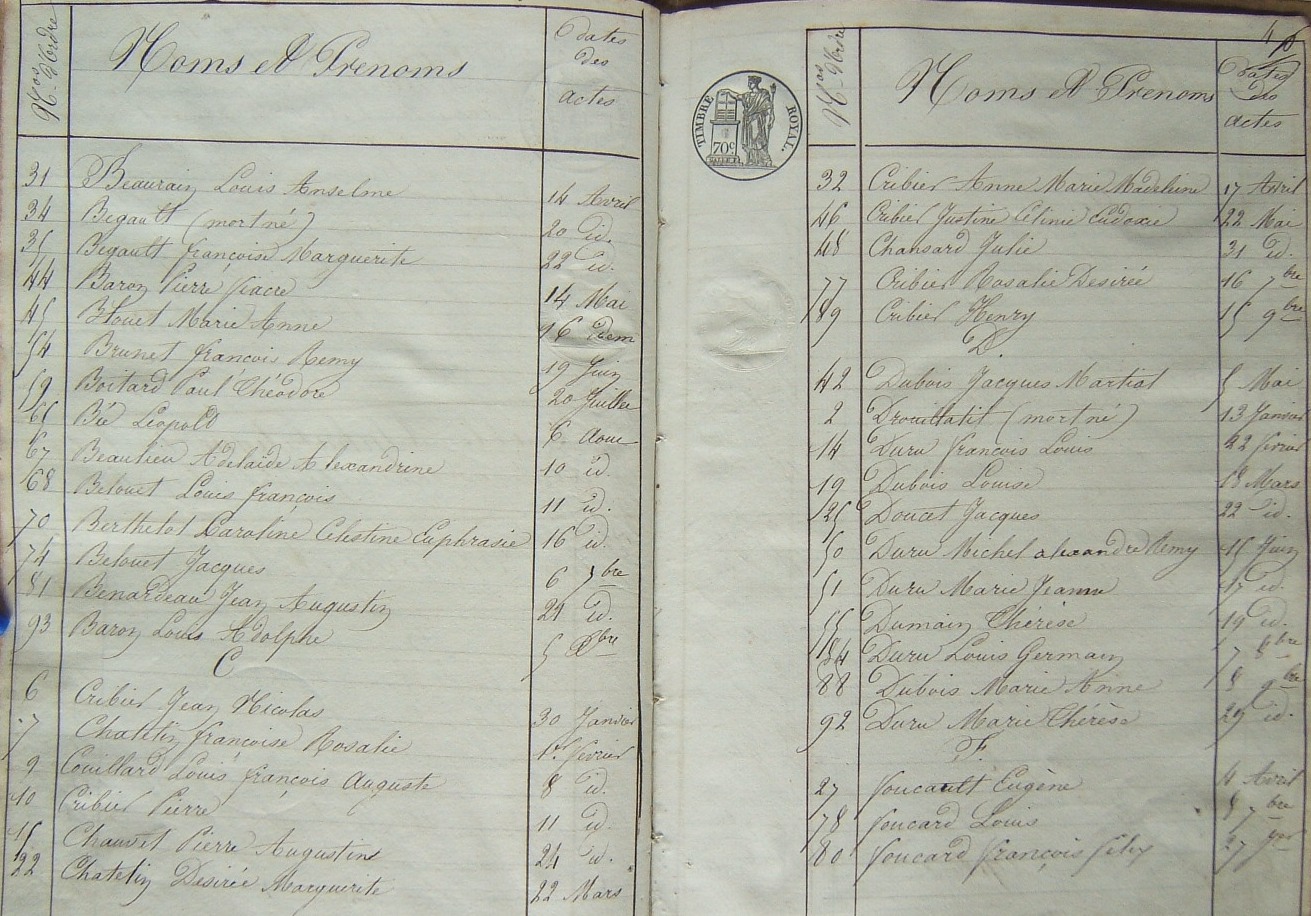 Nos d'Ordre Noms et Prenoms Dates des actes
31 Beaurain Louis Anselme 14 Avril
34 Begault (mort né) 20 id.
35 Begault françoise Marguerite 22 id.
44 Baron Pierre fiacre 14 Mai
45 Blouet Marie Anne 16 idem
54 Brunet françois Remy 19 Juin
59 Boitard Paul Théodore 20 Juillet
65 Bié Léopold 6 Aout
67 Beaulieu Adelaïde Alexandrine 10 id.
68 Belouet Louis françois 11 id.
70 Berthelot Caroline Celestine Euphrasie 16 id.
74 Belouet Jacques 6 7bre
81 Benardeau Jean Augustin 29 id.
93 Baron Louis Adolphe 5 Xbre
C
6 Cribier Jean Nicolas 30 Janvier
7 Chatelin françoise Rosalie 1er février
9 Couillard Louis françois Auguste 8 id.
10 Cribier Pierre 11 id.
15 Chauvet Pierre Augustin 24 id.
22 Chatelin Desirée Marguerite 22 Mars
46
TIMBRE ROYAL.
70c
Nos d'Ordre Noms et Prenoms Dates des actes
32 Cribier Anne Marie Madeleine 17 Avril
46 Cribier Justine Céline Eudoxie 22 Mai
48 Chansard Julie 31 id.
77 Cribier Rosalie Desirée 16 7bre
89 Cribier Henry 15 9bre
D.
42 Dubois Jacques Martial 5 Mai
2 Drouillatit (mort né) 13 Janvier
14 Duru françois Louis 22 février
19 Dubois Louise 18 Mars
25 Doucet Jacques 22 id.
50 Duru Michel alexandre Remy 15 Juin
51 Duru Marie Jeanne 17 id.
55 Dumain Thérèse 19 id.
84 Duru Louis Germain 7 8bre
88 Dubois Marie Anne 8 9bre
92 Duru Marie Thérèse 29 id.
F.
27 foucault Eugène 4 Avril
78 foucard Louis 7bre
80 foucard françois félix 27